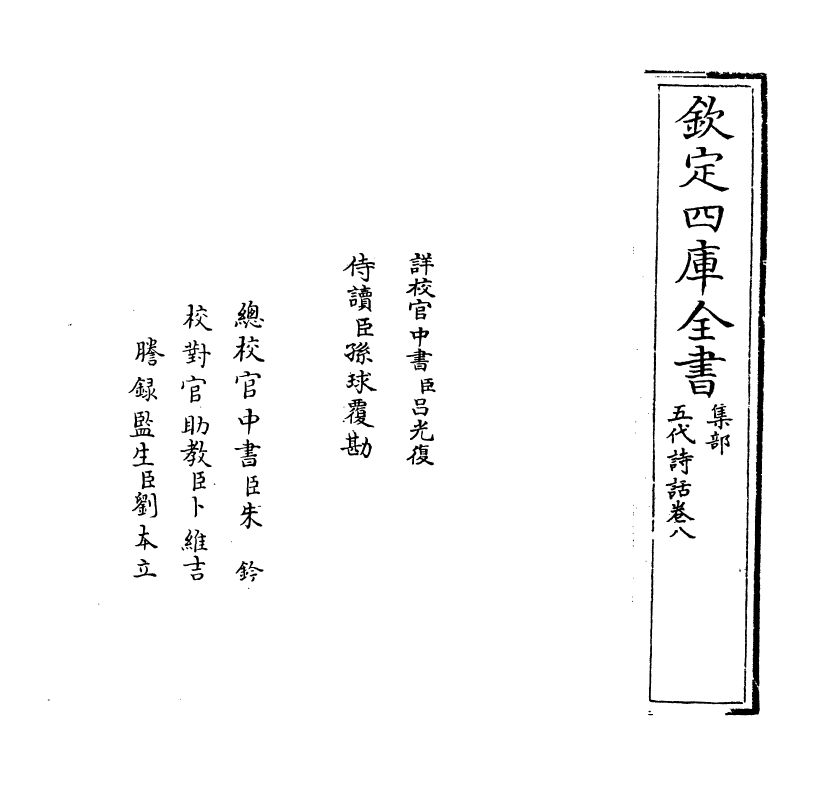 欽定四庫全書
集部
五代詩話卷八
詳校官中書臣呂光復
侍讀臣孫球覆勘
總校官中書臣朱鈐
校對官助教臣卜維吉
謄録監生臣劉本立